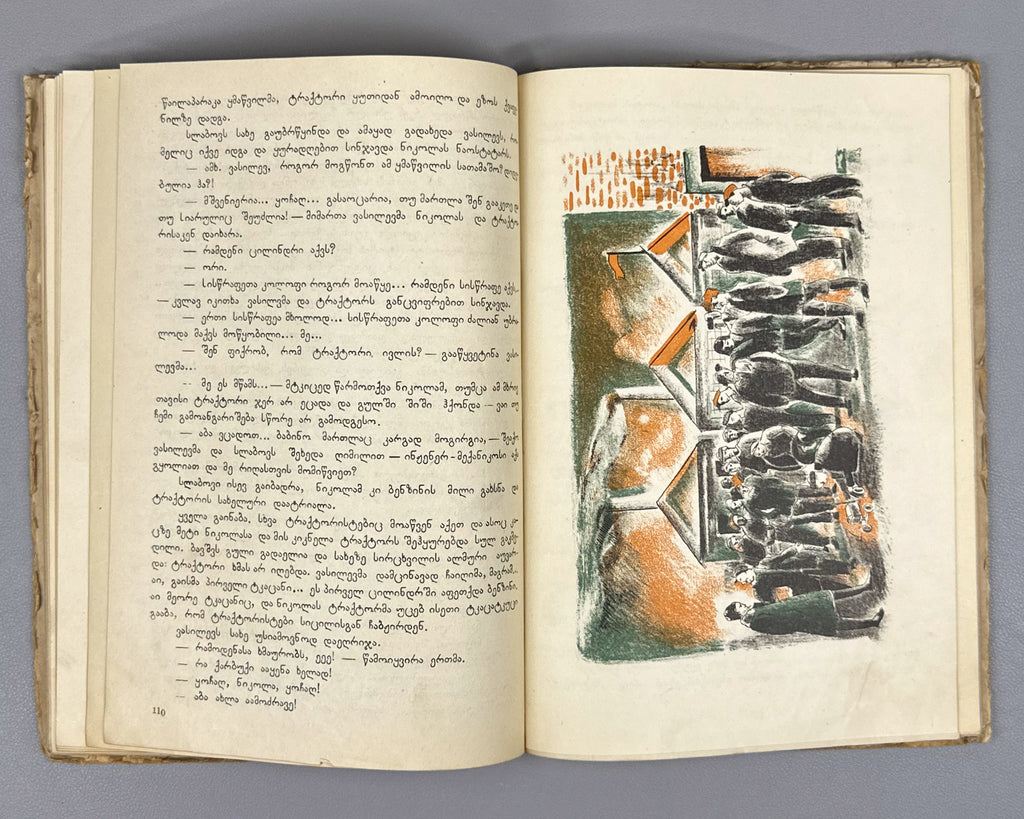 წაილაპარაკა ყმაწვილმა, ტრაქტორი ყუთიდან ამოიღო და ეზოს
ნილზე დადგა.
სლაბოვს სახე გაუბრწყინდა და ამაყად გადახედა ვასილევს, რო
მელიც იქვე იდგა და ყურადღებით სინჯავდა ნიკოლას ნაოსტატარს.
— ამხ. ვასილევ, როგორ მოგწონთ ამ ყმაწვილის სათამაშო?
ბულია ჰა?!
— მშვენიერია... ყოჩაღ... გასაოცარია, თუ მართლა შენ
თუ სიარულიც შეუძლია! — მიმართა ვასილევმა ნიკოლას და ტრაქტო
რისაკენ დაიხარა.
— რამდენი ცილინდრი აქვს?
— ორი.
— სისწრაფეთა კოლოფი როგორ მოაწყე... რამდენი სისწრაფე აქვს
— კვლავ იკითხა ვასილვმა და ტრაქტორს განცვიფრებით სინჯავდა.
— ერთი სისწრაფეა მხოლოდ... სისწრაფეთა კოლოფი ძალიან უბრა
ლოდა მაქვს მოწყობილი... მე...
— შენ ფიქრობ, რომ ტრაქტორი ივლის? — გააწყვეტინა ვასი
ლევმა...
— მე ეს მწამს... — მტკიცედ წარმოთქვა ნიკოლამ, თუმცა ამ
თავისი ტრაქტორი ჯერ არ ეცადა და გულში შიში ჰქონდა — ვაი თუ
ჩემი გამოანგარიშება სწორე არ გამოდგესო.
— აბა ვცადოთ... ბაბინო მართლაც კარგად მოგირგია, —
ვასილევმა და სლაბოვს შეხედა ღიმილით — ინჟენერ-მექანიკოსი
გყოლიათ და მე რიღასთვის მომიწვიეთ?
სლაბოვი ისევ გაიბადრა, ნიკოლამ კი ბენზინის მილი გახსნა და
ტრაქტორის სახელური დაატრიალა.
ყველა გაინაბა. სხვა ტრაქტორისტებიც მოაწვენ აქეთ და ასოც
ცზე მეტი ნიკოლასა და მის კიკნელა ტრაქტორს შეჰყურებდა სულ
დილი. ბავშვს გული გადაელია და სახეზე სირცხვილის ალმური
და: ტრაქტორი ხმას არ იღებდა. ვასილევმა დამცინავად ჩაიღიმა, მაგრამ...
აი, გაისმა პირველი ტკაცანი... ეს პირველ ცილინდრში აფეთქდა ბენზინი.
აი მეორე ტკაცანიც, და ნიკოლას ტრაქტორმა უცებ ისეთი ტკაცატკუცი
გააბა, რომ ტრაქტორისტები სიცილისგან ჩაბჟირდენ.
ვასილევს სახე უსიამოვნოდ დაეღრიჯა.
— რამოდენასა ხმაურობს, ეეე! — წამოიყვირა ერთმა.
— რა ქარბუქი ააყენა ხელად!
— ყოჩაღ, ნიკოლა, ყოჩაღ!
— აბა ახლა აამოძრავე!
110